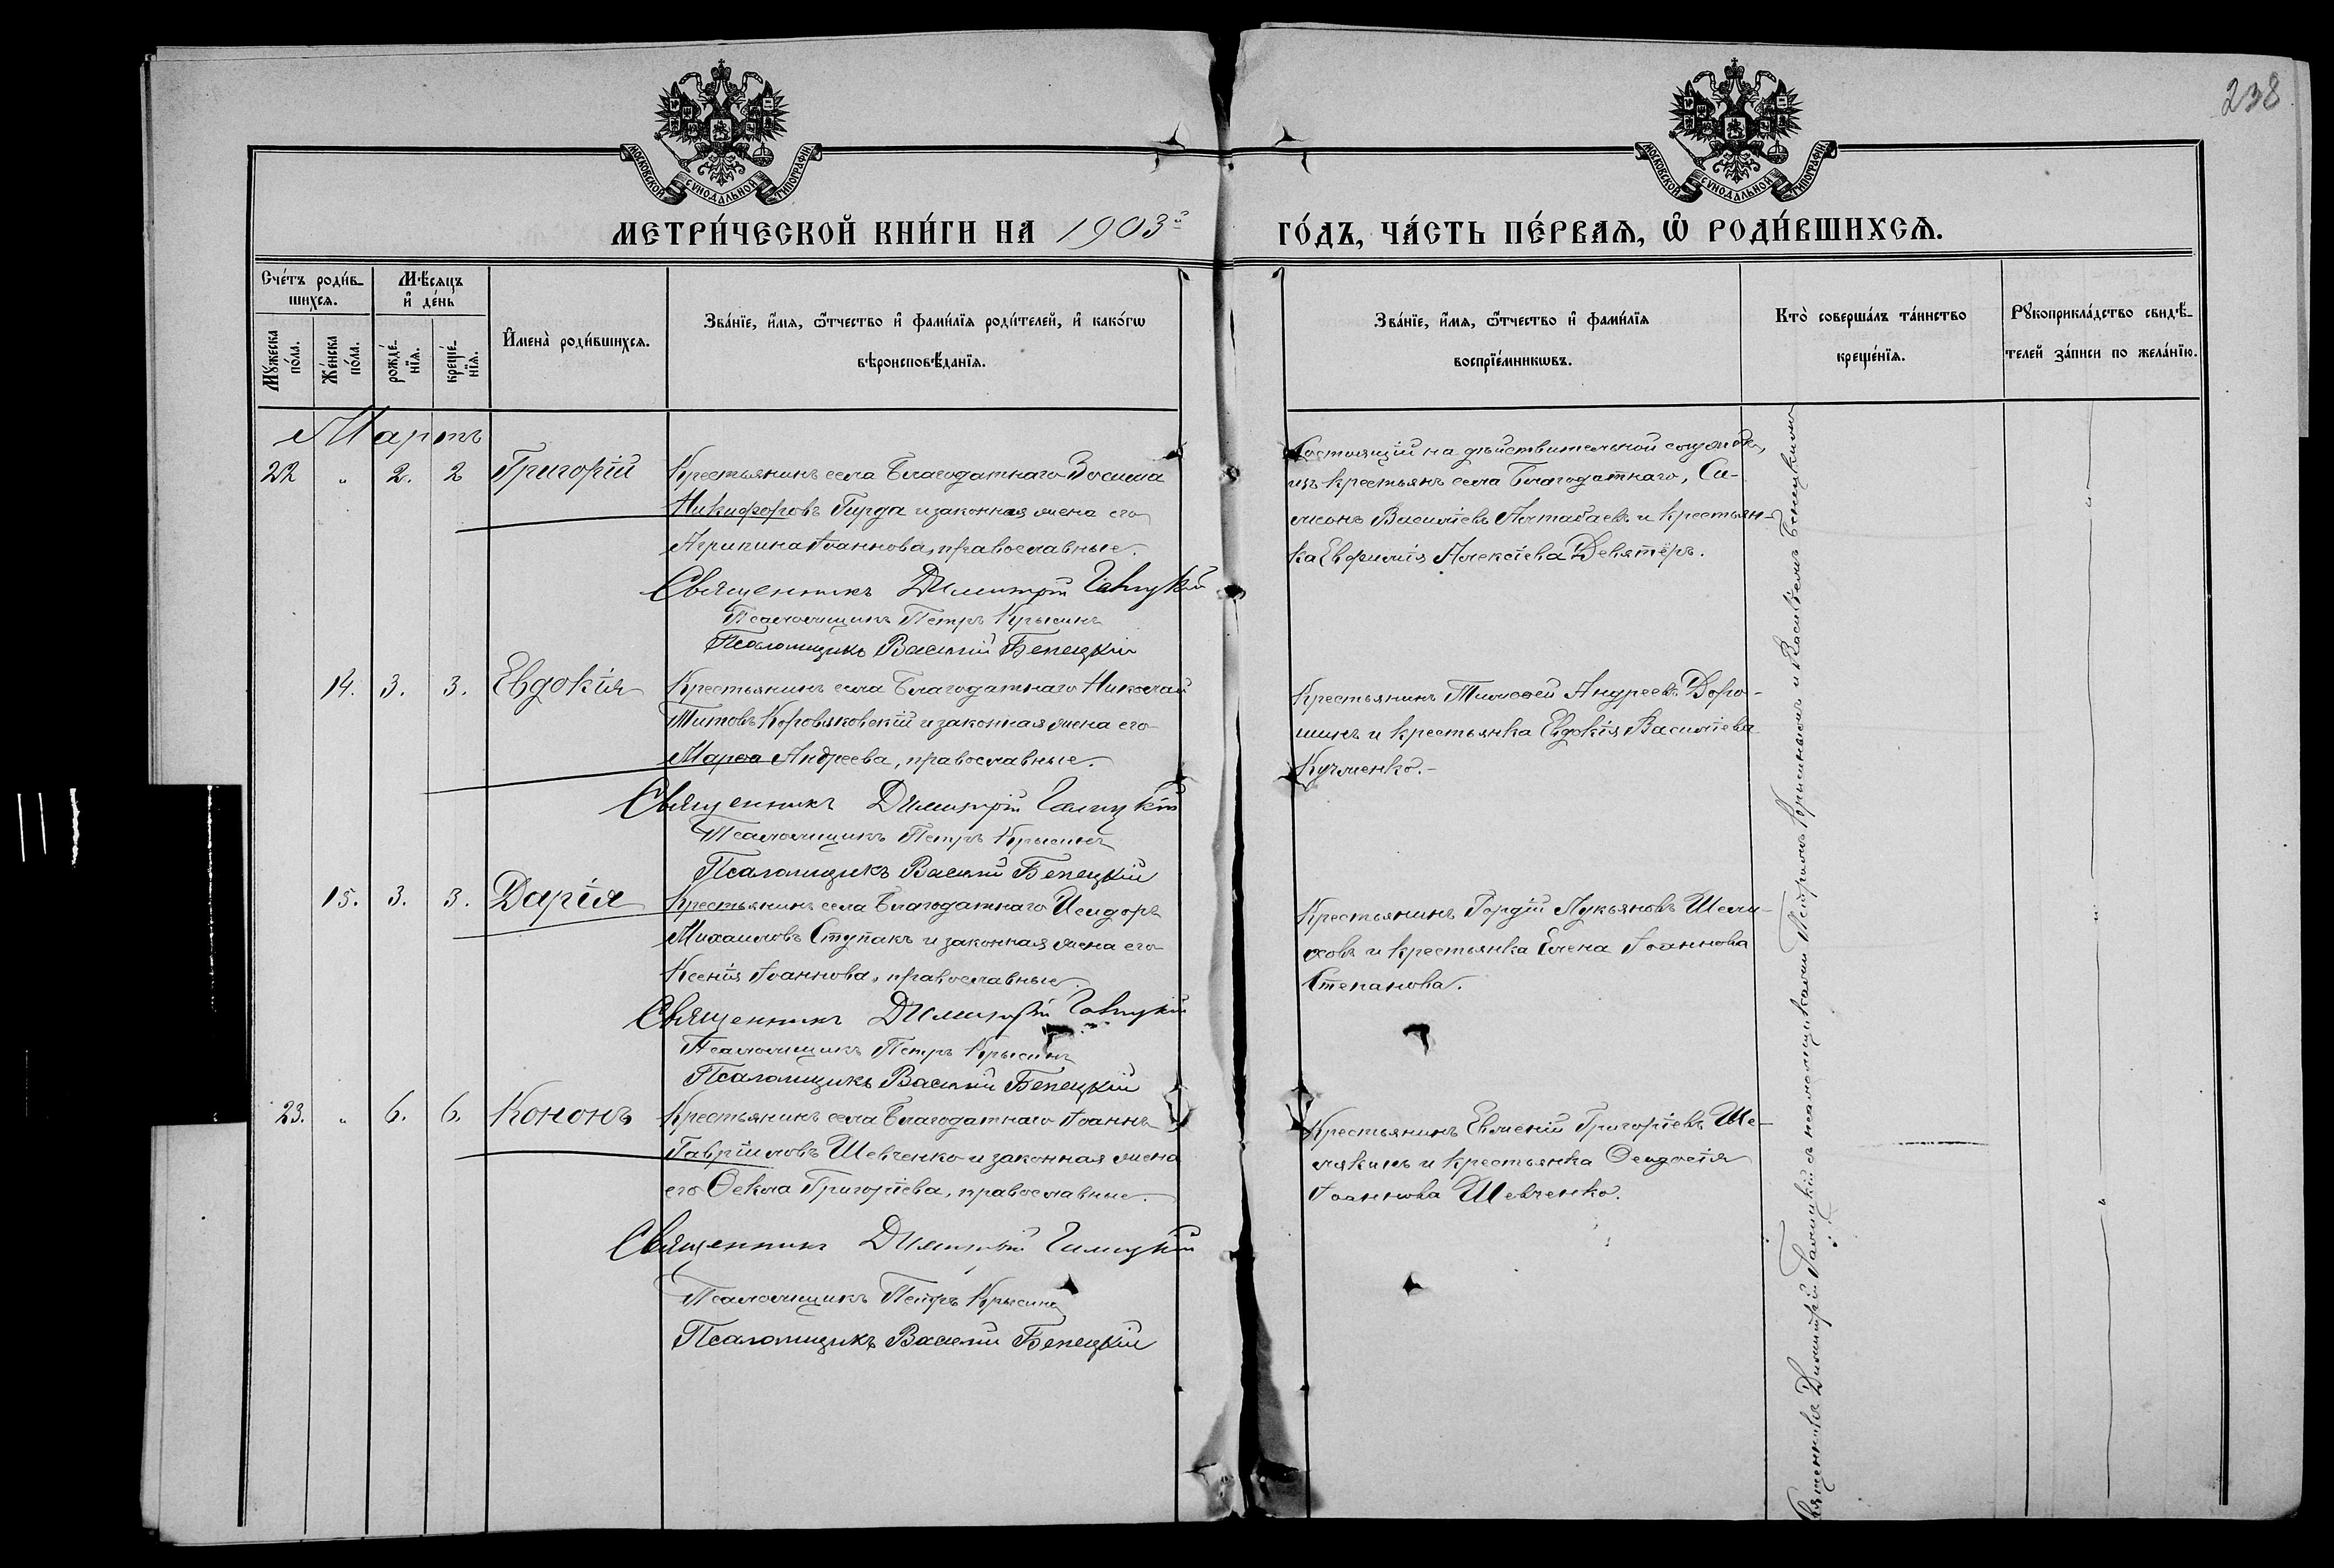 238
МОСКОВСКОЙ СѴНОДАЛЬНОЙ ТИПОГРАФІИ
МОСКОВСКОЙ СѴНОДАЛЬНОЙ ТИПОГРАФІИ
МЕТРИ́ЧЕСКОЙ КНИ́ГИ НА 1903й ГО́ДЪ, ЧА́СТЬ ПЕ́РВАѦ, Ѡ҆ РОДИ́ВШИХСѦ.
Сче́тъ роди́в-
шихсѧ.
Мꙋжеска по́ла.
Же́нска по́ла.
Мѣ́сѧцъ
и҆ де́нь
рожде́-
нїѧ.
креще́-
нїѧ.
И҆мена̀ роди́вшихсѧ.
Зва́нїе, и҆́мѧ, ѻ҆́тчество и҆ фами́лїѧ роди́телей, и҆ како́гѡ
вѣроисповѣ́данїѧ.
Зва́нїе, и҆́мѧ, ѻ҆́тчество и҆ фами́лїѧ
воспрїе́мникѡвъ.
Кто̀ соверша́лъ та́инство
креще́нїѧ.
Рꙋкоприкла́дство свидѣ́-
телей за́писи по жела́нїю.
Мартъ
22 " 2. 2 Григорій
Крестьянинъ села Благодатнаго Зосима
Никифоровъ Гирда и законная жена его
Агрипина Іоаннова, православные.
Священникъ Димитрій Галицкій
Псаломщикъ Петръ Крысинъ
Псаломщикъ Василій Бепецкій
Состоящій на дѣйствительной
изъ крестьянъ села Благодатнаго, Си-
меонъ Василіевъ Алтабаевъ и крестьян-
ка Евфимія Алексіева Девятёръ.
14. 3. 3. Евдокія
Крестьянинъ села Благодатнаго Николай
Титовъ Коровяковскій и законная жена его
Марѳа Андреева, православные.
Священникъ Димитрій Галицкій
Псаломщикъ Петръ Крысинъ
Псаломщикъ Василій Бепецкій
Крестьянинъ Тимоѳей Андреевъ Доро-
шинъ и крестьянка Евдокія Василіева
Кучменко.-
15. 3. 3. Дарія
Крестьянинъ села Благодатнаго Исидоръ
Михаиловъ Ступакъ и законная жена его
Ксенія Іоаннова, православные.
Священникъ Димитрій Галицкій
Псаломщикъ Петръ Крысинъ
Псаломщикъ Василій Бепецкій
Крестьянинъ Гордій Лукьяновъ Шели-
ховъ и крестьянка Елена Іоаннова
Степанова.
23. " 6. 6. Кононъ
Крестьянинъ села Благодатнаго Іоаннъ
Гавріиловъ Шевченко и законная жена
его Ѳекла Григоріева, православные.
Священникъ Димитрій Галицкій
Псаломщикъ Петръ Крысинъ
Псаломщикъ Василій Бепецкій
Крестьянинъ Евмений Григоріевъ Ше-
мякинъ и крестьянка Ѳеодосія
Іоаннова Шевченко.
Священникъ Димитрій Галицкій съ псаломщиками Петромъ Крысинымъ и Василіемъ Бепецкимъ